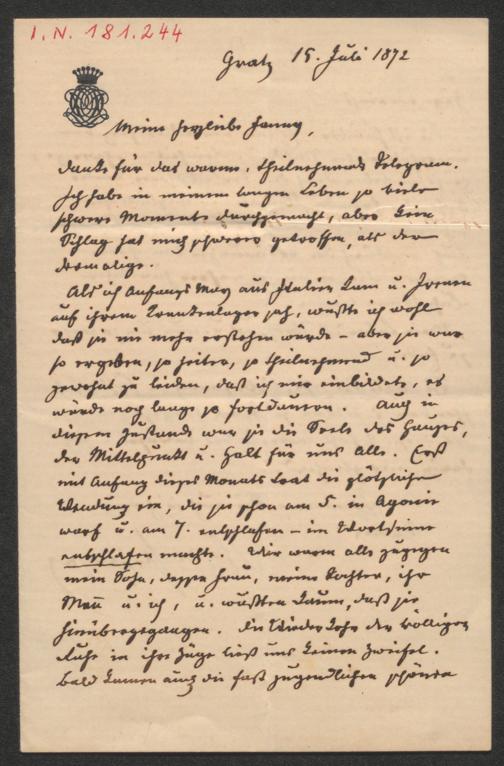 I. N. 181.244
Gratz 15. Juli 1872
Meine herzliebe Fanny,
Danke für das warme, theilnehmende Telegram.
Ich habe in meinem langen Leben so viele
schwere Momente durchgemacht, aber kein
Schlag hat mich schwerer getroffen, als der
dermalige.
Als ich Anfangs May aus Italien kam u. Irenen
auf ihrem Krankenlager sah, wußte ich wohl
daß sie nie mehr erstehen würde – aber sie war
so ergeben, so heiter, so theilnehmend u. so
gewohnt zu leiden, daß ich mir einbildete, es
würde noch lange so fortdauern. Auch in
diesem Zustande war sie die Seele des Hauses,
der Mittelpunkt u. Halt für uns Alle. Erst
mit Anfang dieses Monats trat die plötzliche
Wendung ein, die sie schon am 5. in Agonie
warf u. am 7. entschlafen – im Wortsinne
entschlafen machte. Wir waren alle zugegen
mein Sohn, dessen Frau, meine Tochter, ihr
Mann u. ich, u. wußten kaum, daß sie
hinübergegangen. Die Wiederkehr der völligen
Ruhe in ihre Züge ließ uns keinen Zweifel.
Bald kamen auch die fast jugendlichen schönen